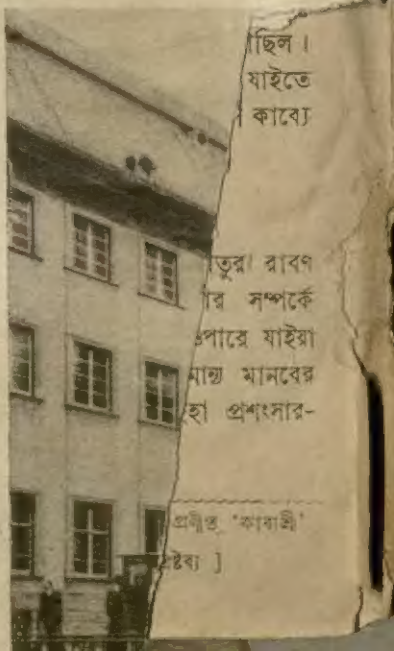 ছিল।
যাইতে
কাব্যে
তুর রাবণ
র সম্পর্কে
পারে যাইয়া
মান্য মানবের
হা প্রশংসার-
প্রণীত 'কাব্যশ্রী'
ষ্টব্য ]